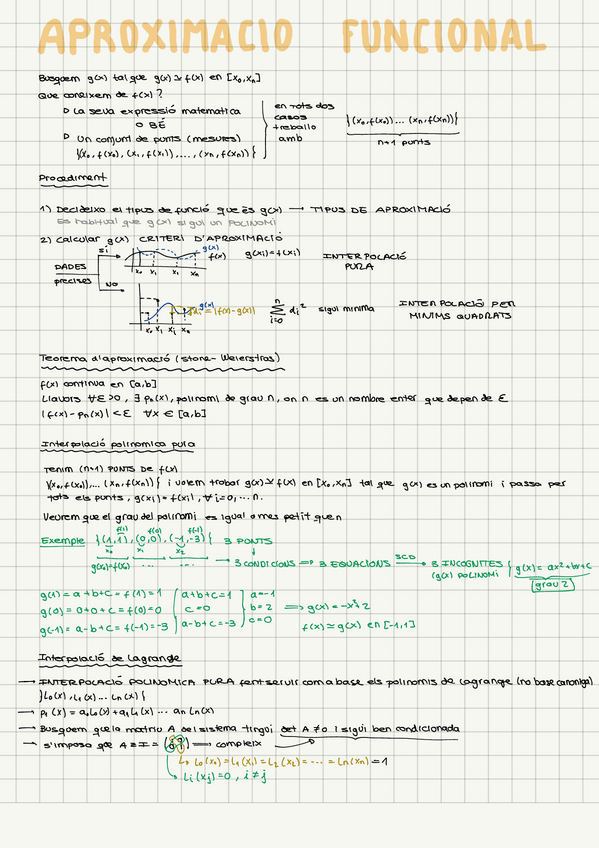 APROXIMACIO FUNCIONAL
Busquem g(x) tal que g(x) ≃ f(x) en [x₀,xₙ]
Que coneixem de f(x)?
▷ La seva expressió matematica
o BÉ
▷ Un conjunt de punts (mesures)
{(x₀, f(x₀), (x₁, f(x₁)), ..., (xₙ, f(xₙ))}
en tots dos
casos
treballo
amb
{(x₀, f(x₀)) ... (xₙ, f(xₙ))}
n+1 punts
Procediment
1) Decideixo el tipus de funció que és g(x) → TIPUS DE APROXIMACIÓ
Es habitual que g(x) sigui un POLINOMI
2) Calcular g(x) CRITERI D'APROXIMACIÓ
DADES
precises
Sí
g(x)
f(x)
x₀ x₁ x₁ xₙ
g(xi) = f(xi)
INTERPOLACIÓ
PURA
NO
g(x)
di = |f(x)-g(x)|
x₀ x₁ x₁ xₙ
n Σ i=0 di² sigui minima
INTERPOLACIÓ PER
MINIMS QUADRATS
Teorema d'aproximació (Stone-Weierstras)
f(x) continua en [a,b]
Llavors ∀ε>0, ∃ pₙ(x), polinomi de grau n, on n es un nombre enter que depen de ε
|f(x) - pₙ(x)| < ε ∀x ∈ [a,b]
Interpolació polinomica pura
Tenim (n+1) PUNTS DE f(x)
{(x₀, f(x₀)), ... (xₙ, f(xₙ))} i volem trobar g(x) ≃ f(x) en [x₀, xₙ] tal que g(x) es un polinomi i passa per
tots els punts, g(xi) = f(xi), ∀ i=0, ... n.
Veurem que el grau del polinomi es igual o mes petit que n
Exemple {(1,1), (0,0), (-1,-3)} 3 PUNTS
f(1) f(0) f(-1)
x₁ x₂
g(x₀)=f(x₀)
→ 3 CONDICIONS ⇒ 3 EQUACIONS
SCD
→ 3 INCOGNITES
(g(x) POLINOMI
{g(x) = ax²+bx+c
grau 2
g(1) = a+b+c = f(1) = 1
g(0) = 0+0+c = f(0) = 0
g(-1) = a-b+c = f(-1) = -3
a+b+c=1
c=0
a-b+c=-3
a=-1
b=2
c=0
⇒ g(x) = -x²+2
f(x) ≃ g(x) en [-1,1]
Interpolació de Lagrange
→ INTERPOLACIÓ POLINOMICA PURA fent servir com a base els polinomis de Lagrange (no base canoniga)
{L₀(x), L₁(x) ... Ln(x)}
→ p₁(x) = a₀L₀(x) + a₁L₁(x) ... an Ln(x)
→ Busquem que la matriu A del sistema tingui det A ≠ 0 i sigui ben condicionada
→ s'imposa que A = I = ⇒ compleix
↳ L₀(x₀) = L₁(x₁) = L₂(x₂) = ... = Ln(xn) = 1
↳ Li(xj) = 0, i ≠ j